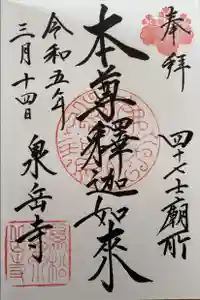 奉拝
四十七士廟所
本尊釋迦如來
令和五年
三月十四日
泉岳寺